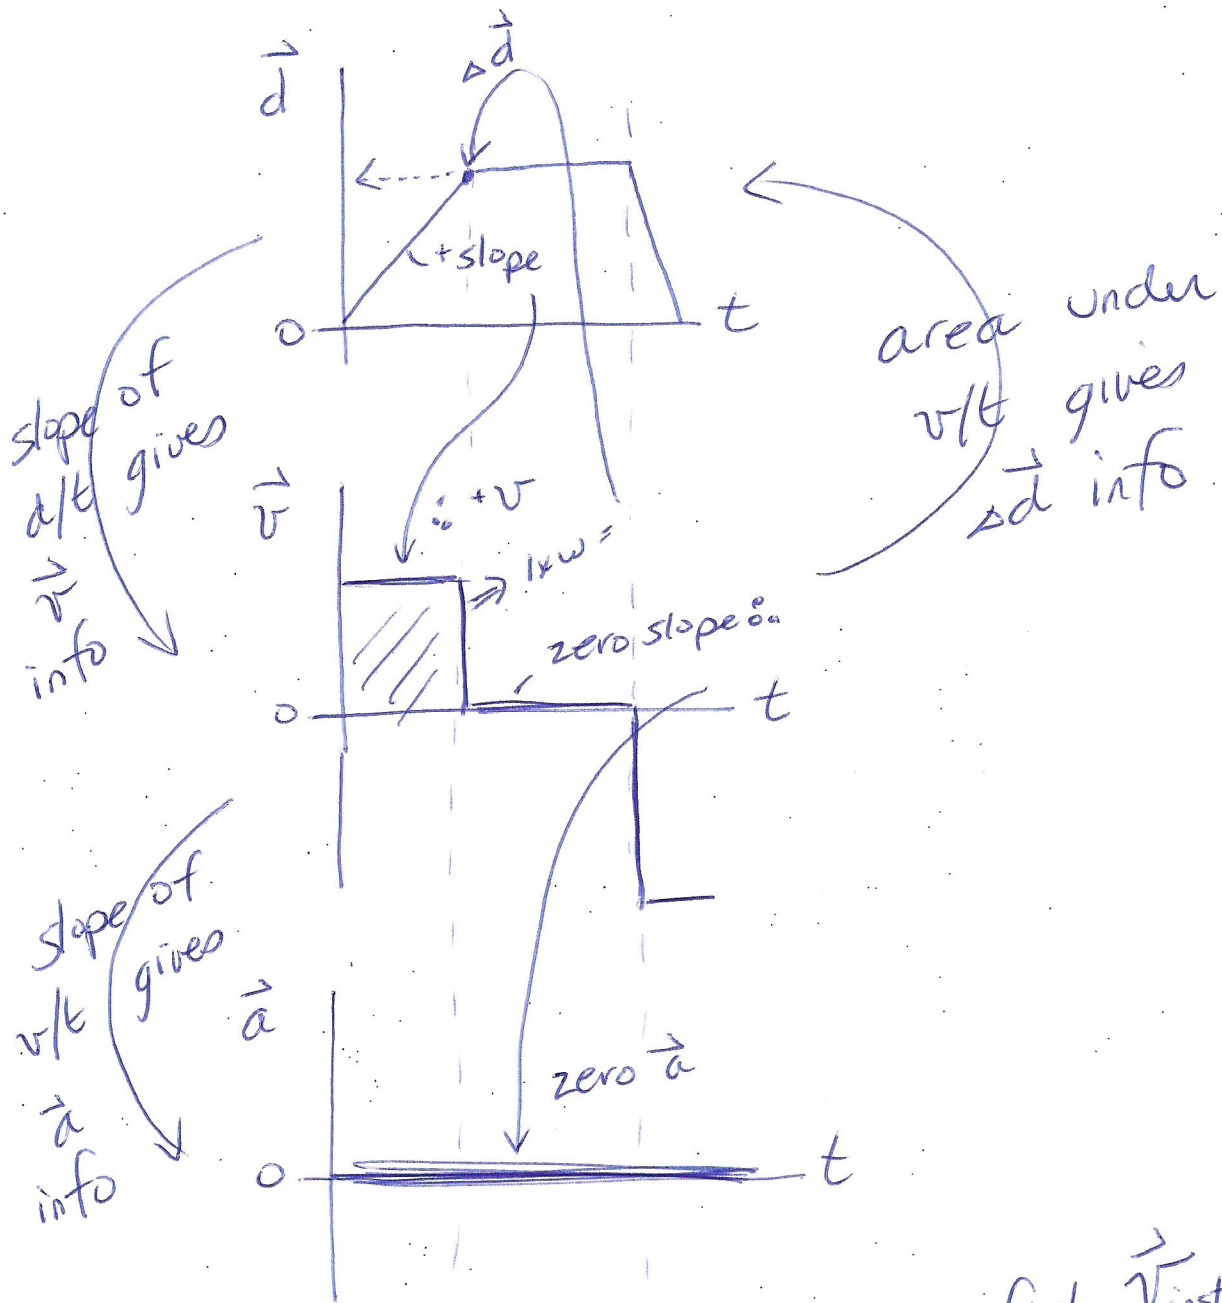 Δd⃗
d⃗
+slope
0
t
slope of
d/t gives
v⃗
info
area under
v/t gives
Δd⃗ info
v⃗
∴ +v
⇒ l×w =
zero slope ∴
0
t
slope of
v/t gives
a⃗
info
a⃗
zero a⃗
0
t
v⃗inst